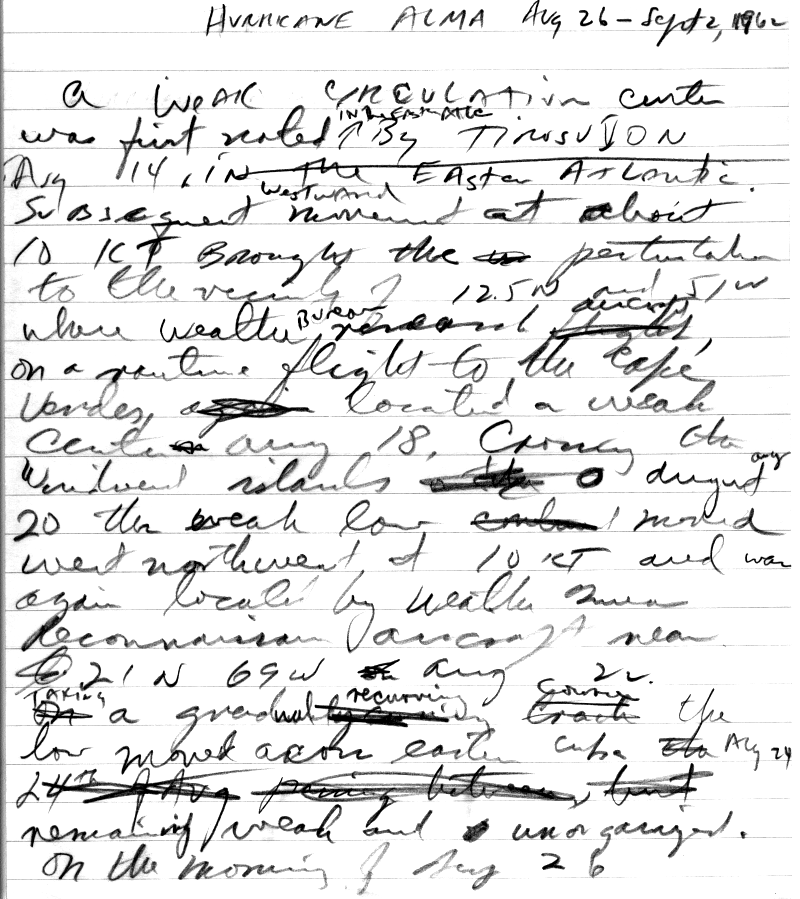 HURRICANE ALMA Aug 26 - Sept 2, 1962
A WEAK CIRCULATION center
in the East Atlc
was first noted By TIROS V ON
Aug 14, in the Eastern Atlantic.
westward
Subsequent movement at about
10 KT Brought the perturbation
to the vicinity of 12.5N and 51W
Bureau aircraft
where weather research flight,
on a routine flight to the Cape
Verdes, again located a weak
Center aug 18. Crossing the
Windward islands the aug
20 the weak low moved
west northwest at 10 KT and was
again located by weather Bureau
Reconnaissance aircraft near
21N 69W aug 22.
TAKING recurving course
On a gradually track the
low moved across eastern Cuba Aug 24
24th of Aug passing between, but
remaining weak and unorganized.
On the morning of Aug 26